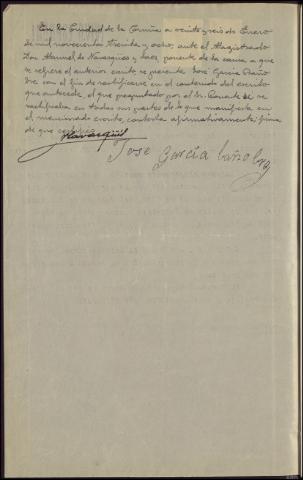 En la Ciudad de la Coruña a veinte y seis de Enero
de mil novecientos treinta y ocho, ante el Magistrado
Don Manuel de Navasqüés y Juez ponente de la causa a que
se refiere el anterior escrito, se presenta José García
con el fin de ratificarse en el contenido del escrito
que antecede, el que preguntado por el Sr. si se
ratificaba en todas sus partes de lo que manifiesta en
el mencionado escrito, contesta afirmativamente; firma
de que certifico.
Navasqüés
Jose Garcia